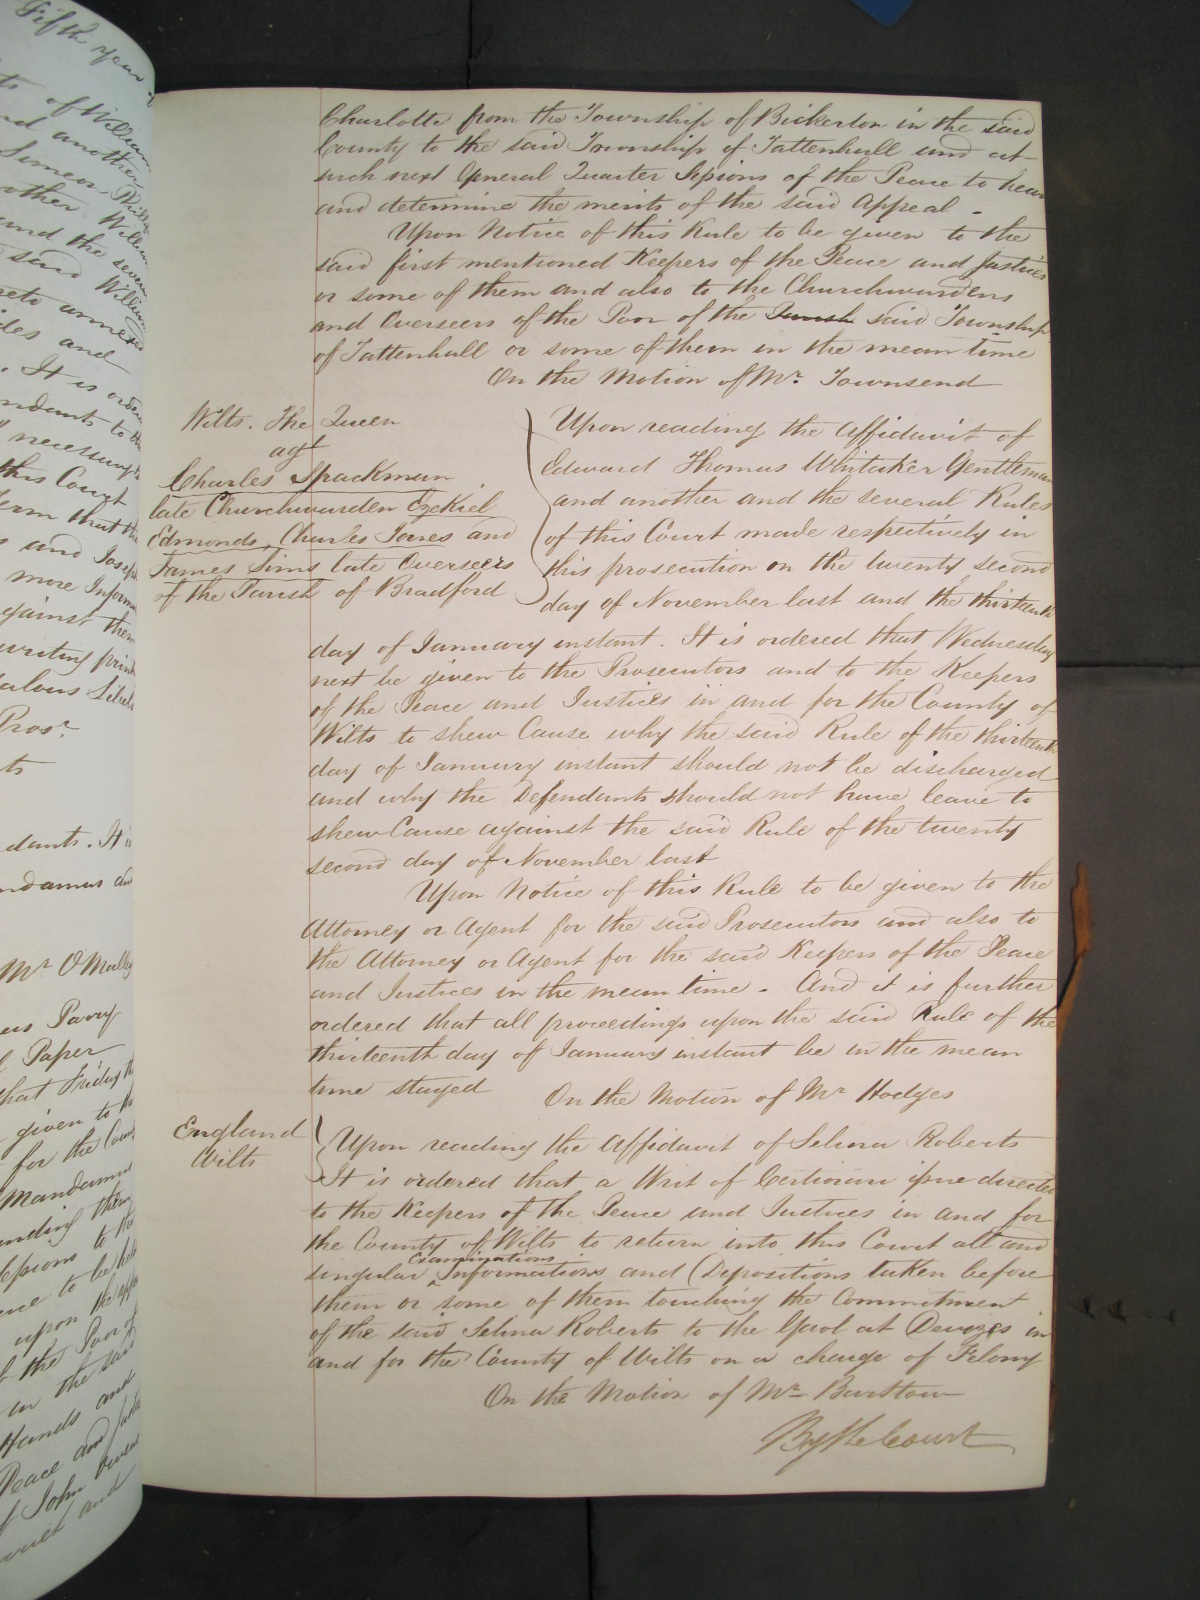 Charlotte from the Township of Bickerton in the said
County to the said Township of Tattenhall and at
such next General Quarter Sessions of the Peace to hear
and determine the merits of the said Appeal -
Upon Notice of this Rule to be given to the
said first mentioned Keepers of the Peace and Justices
or some of them and also to the Churchwardens
and Overseers of the Poor of the Parish said Township
of Tattenhall or some of them in the mean time
On the Motion of Mr. Townsend
Wilts. The Queen
agt
Charles Spackman
late Churchwarden Ezekiel
Edmonds, Charles Jones and
James Sims late Overseers
of the Parish of Bradford
Upon reading the Affidavit of
Edward Thomas Whitaker Gentleman
and another and the several Rules
of this Court made respectively in
this prosecution on the twenty second
day of November last and the thirteenth
day of January instant. It is ordered that Wednesday
next be given to the Prosecutors and to the Keepers
of the Peace and Justices in and for the County of
Wilts to shew Cause why the said Rule of the thirteenth
day of January instant should not be discharged
and why the Defendants should not have leave to
shew Cause against the said Rule of the twenty
second day of November last
Upon Notice of this Rule to be given to the
Attorney or Agent for the said Prosecutors and also to
the Attorney or Agent for the said Keepers of the Peace
and Justices in the mean time - And it is further
ordered that all proceedings upon the said Rule of the
thirteenth day of January instant be in the mean
time stayed On the Motion of Mr Hodges
England
Wilts
Upon reading the Affidavit of Selina Roberts
It is ordered that a Writ of Certiorari issue directed
to the Keepers of the Peace and Justices in and for
the County of Wilts to return into this Court all and
Examinations
singular ^ Informations and Depositions taken before
them or some of them touching the Commitment
of the said Selina Roberts to the Gaol at Devizes in
and for the County of Wilts on a charge of Felony
On the Motion of Mr Burstow
By the Court